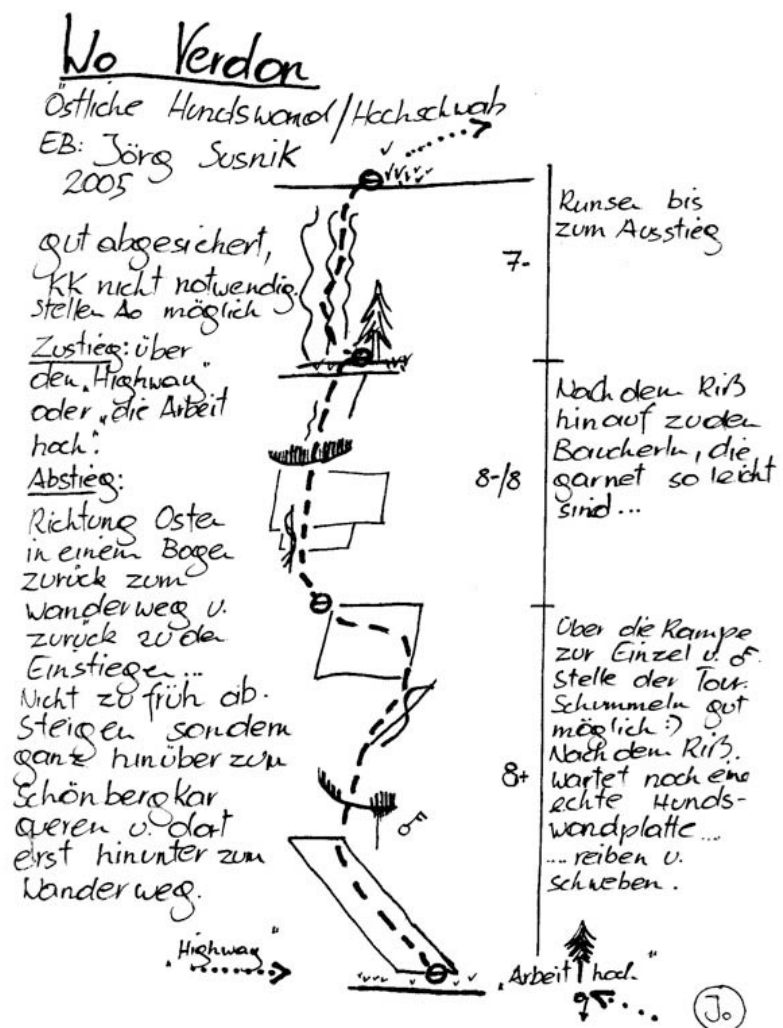 Wo Verdon
Östliche Hundswand/Hochschwab
EB: Jörg Susnik
2005
gut abgesichert,
KK nicht notwendig.
Stellen A0 möglich
Zustieg: über
den „Highway“
oder „die Arbeit
hoch“.
Abstieg:
Richtung Osten
in einem Bogen
zurück zum
Wanderweg u.
zurück zu den
Einstiegen...
Nicht zu früh ab-
steigen sondern
ganz hinüber zum
Schönbergkar
queren u. dort
erst hinunter zum
Wanderweg.
7-
Runsen bis
zum Ausstieg
8-/8
Nach dem Riß
hinauf zu den
Baucherln, die
garnet so leicht
sind...
8+
Über die Rampe
zur Einzel u.
Stelle der Tour.
Schummeln gut
möglich :)
Nach dem Riß
wartet noch eine
echte Hunds-
wandplatte...
... reiben u.
schweben.
„Highway“
„Arbeit hoch“
Jo